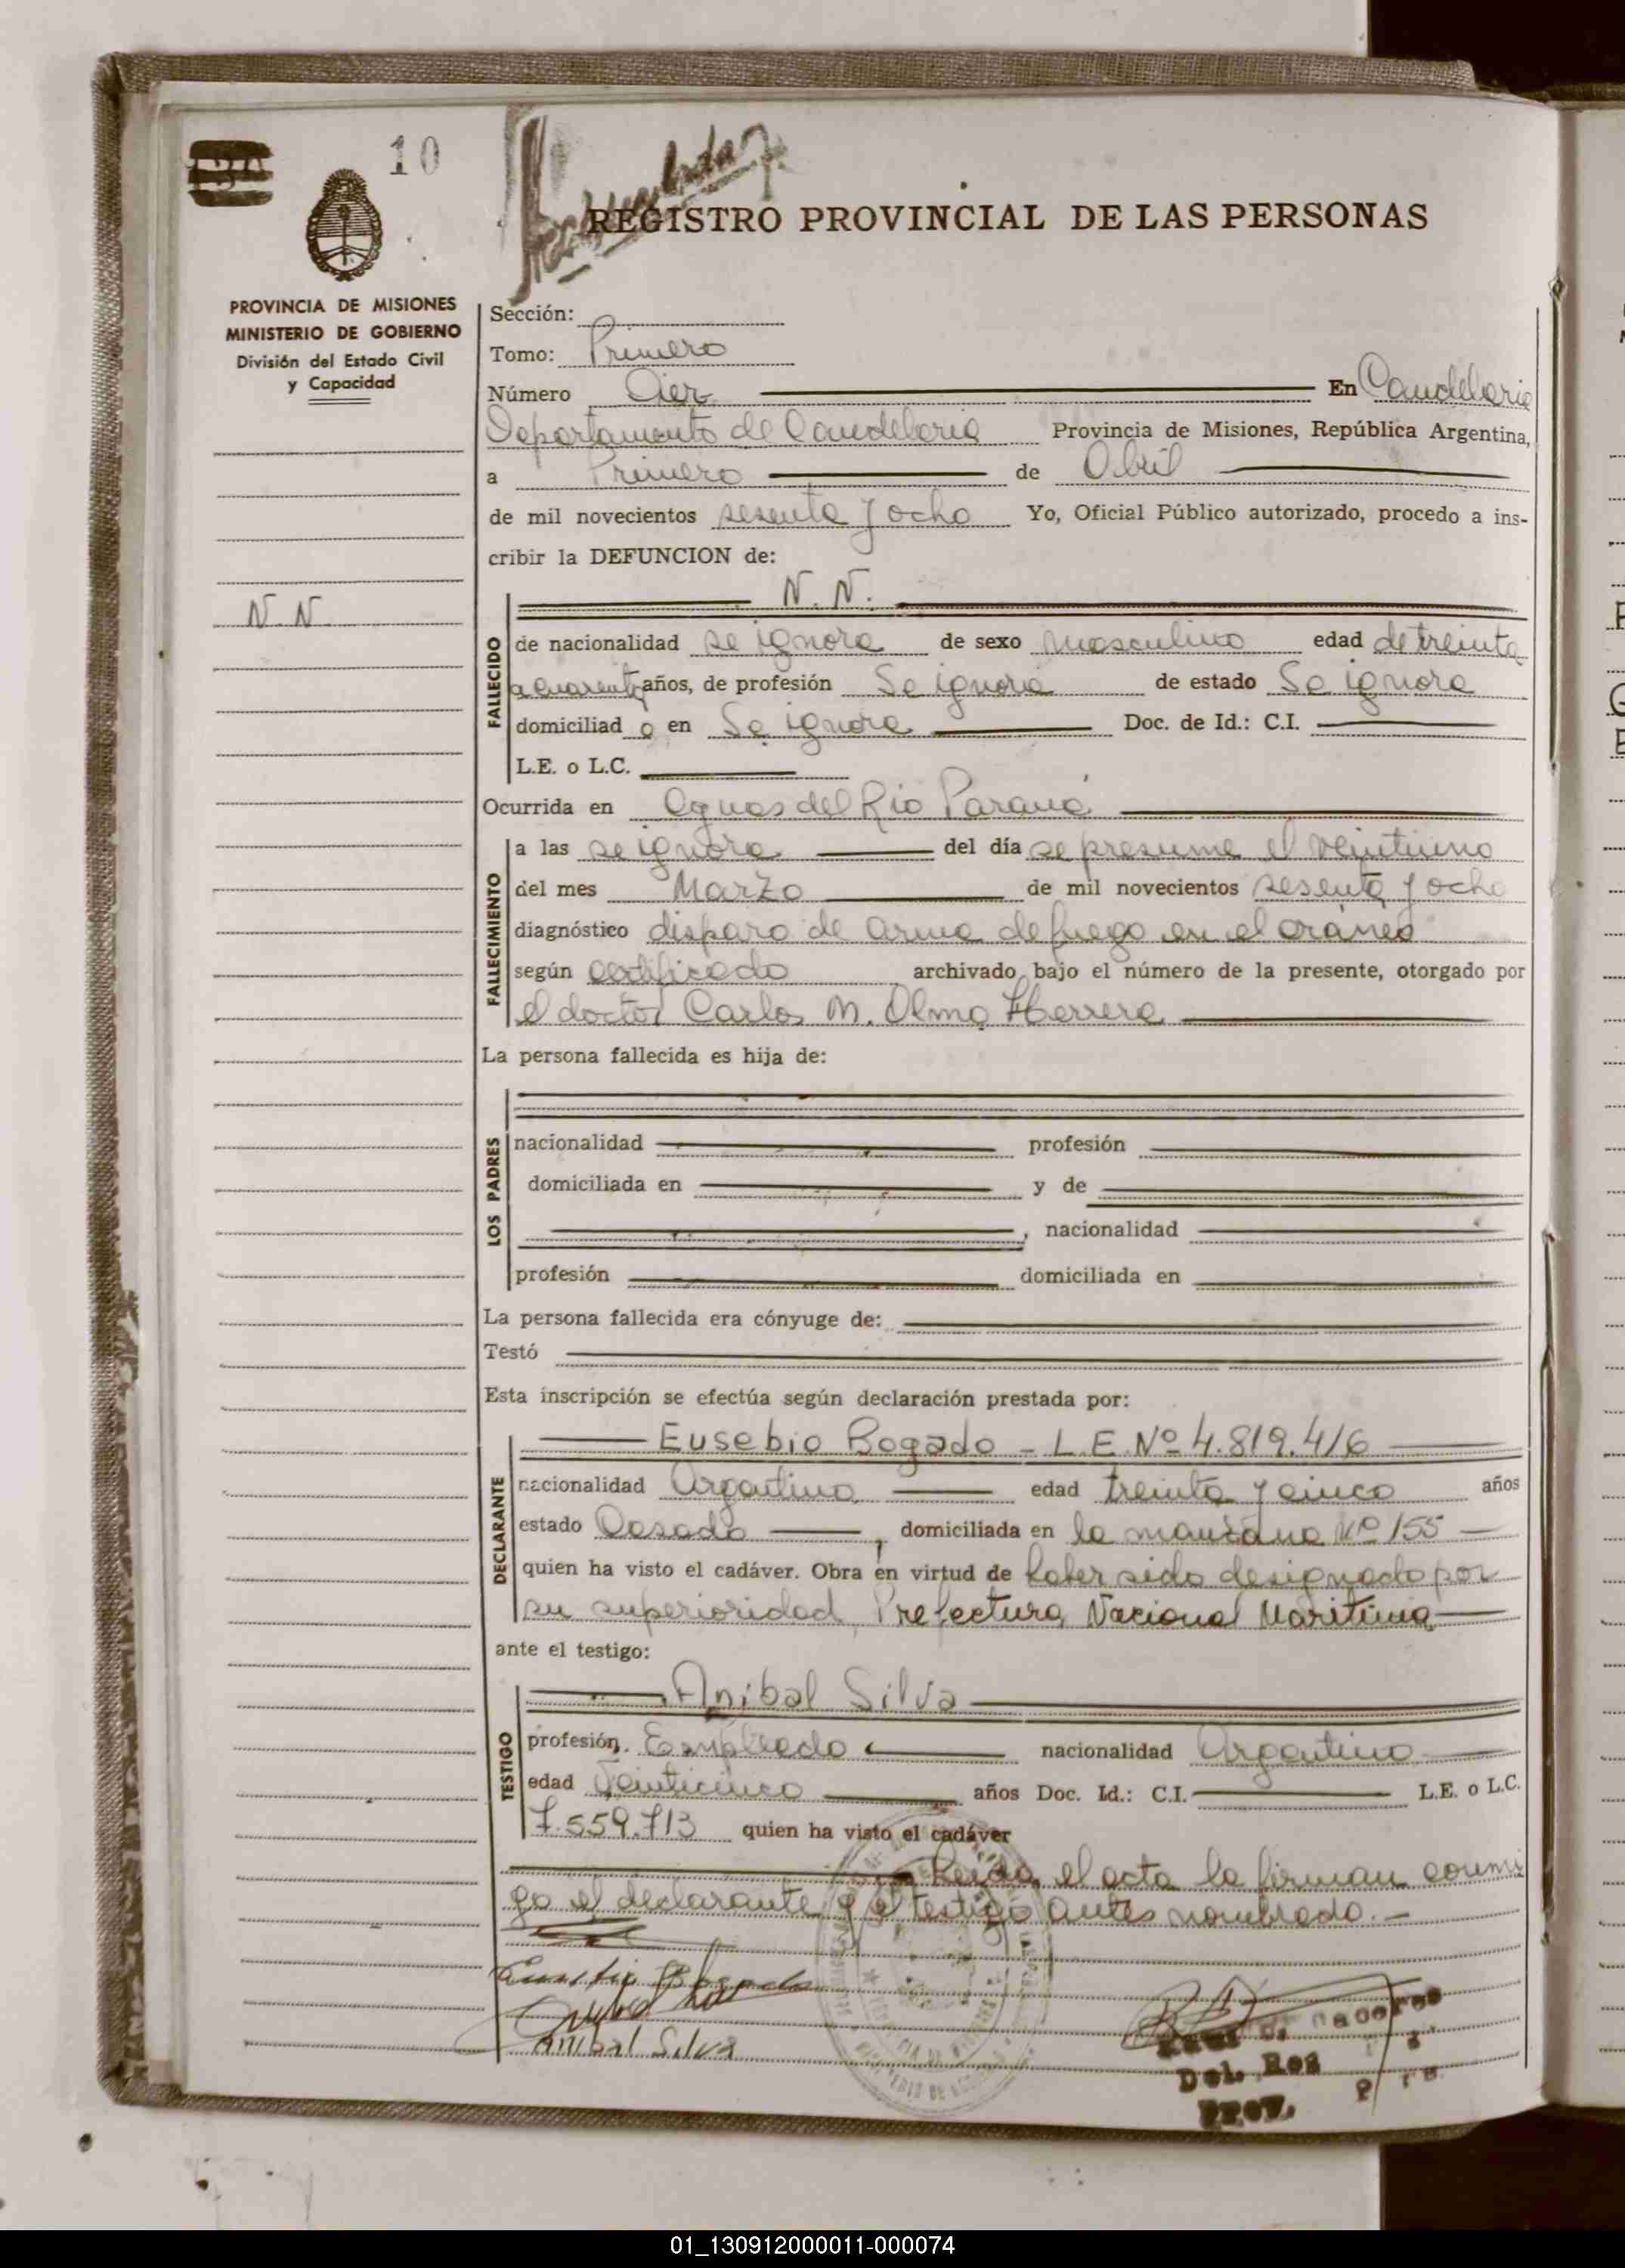 10
REGISTRO PROVINCIAL DE LAS PERSONAS
PROVINCIA DE MISIONES
MINISTERIO DE GOBIERNO
División del Estado Civil
y Capacidad
Sección:
Tomo: Primero
Número Diez En Candelaria
Departamento de Candelaria Provincia de Misiones, República Argentina,
a Primero de Abril
de mil novecientos sesenta y ocho Yo, Oficial Público autorizado, procedo a ins-
cribir la DEFUNCION de:
N. N.
N. N.
FALLECIDO
de nacionalidad se ignora de sexo masculino edad de treinta
a cuarenta años, de profesión Se ignora de estado Se ignora
domiciliad o en Se ignora Doc. de Id.: C.I.
L.E. o L.C.
Ocurrida en Aguas del Río Paraná
FALLECIMIENTO
a las se ignora del día se presume el veintiuno
del mes Marzo de mil novecientos sesenta y ocho
diagnóstico disparo de arma de fuego en el cráneo
según certificado archivado bajo el número de la presente, otorgado por
el doctor Carlos M. Olmo Herrera
La persona fallecida es hija de:
LOS PADRES
nacionalidad profesión
domiciliada en y de
, nacionalidad
profesión domiciliada en
La persona fallecida era cónyuge de:
Testó
Esta inscripción se efectúa según declaración prestada por:
DECLARANTE
Eusebio Bogado - L.E. Nº 4.819.416
nacionalidad Argentino edad treinta y cinco años
estado Casado, domiciliada en la manzana Nº 155
quien ha visto el cadáver. Obra en virtud de haber sido designado por
su superioridad, Prefectura Nacional Maritima
ante el testigo:
TESTIGO
Anibal Silva
profesión Empleado nacionalidad Argentino
edad Veinticinco años Doc. Id.: C.I. L.E. o L.C.
7.559.713 quien ha visto el cadáver
Leída el acta la firman conmi
go el declarante y el testigo antes nombrado.-
Eusebio Bogado
Anibal Silva
Del. Reg
Prov.
01_130912000011-000074